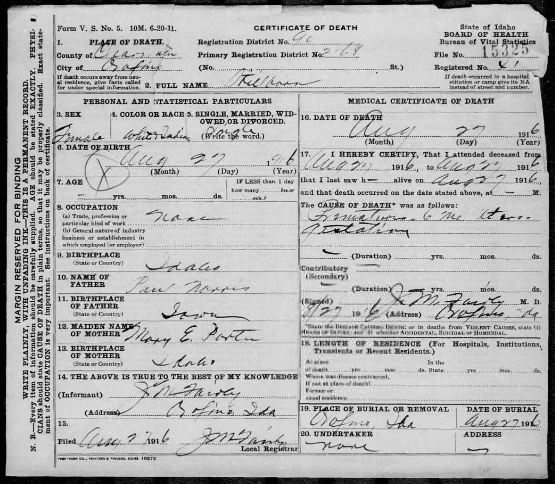 Form V. S. No. 5. 10M. 6-20-11.
CERTIFICATE OF DEATH
State of Idaho
BOARD OF HEALTH
Bureau of Vital Statistics
1. PLACE OF DEATH.
County of
City of Orofino
If death occurs away from usual residence, give facts called for under special information.
Registration District No.
Primary Registration District No.
(No. St.)
2. FULL NAME Stillborn
File No. 15325
Registered No. 41
If death occurred in a hospital institution or camp give its NAME instead of street and number.
MARGIN RESERVED FOR BINDING
WRITE PLAINLY, WITH UNFADING INK—THIS IS A PERMANENT RECORD.
N. B.—Every item of information should be carefully supplied. AGE should be stated EXACTLY. PHYSICIANS should state CAUSE OF DEATH in plain terms, so that it may be properly classified. Exact statement of OCCUPATION is very important. See instructions on back of certificate.
PERSONAL AND STATISTICAL PARTICULARS
3. SEX
Female
4. COLOR OR RACE
White Indian
5. SINGLE, MARRIED, WIDOWED, OR DIVORCED.
(Write the word.)
Single
6. DATE OF BIRTH
Aug 27 916
(Month) (Day) (Year)
7. AGE
yrs. mos. ds.
IF LESS than 1 day
how many hrs
or min?
8. OCCUPATION
(a) Trade, profession or particular kind of work
(b) General nature of industry business or establishment in which employed (or employer)
None
9. BIRTHPLACE
(State or Country)
Idaho
10. NAME OF FATHER
Paul Norris
11. BIRTHPLACE OF FATHER
(State or Country)
Iowa
12. MAIDEN NAME OF MOTHER
Mary E. Porter
13. BIRTHPLACE OF MOTHER
(State or Country)
Idaho
14. THE ABOVE IS TRUE TO THE BEST OF MY KNOWLEDGE
(Informant) J M Fairly
(Address) Orofino Ida
15.
Filed Aug 27 1916 J M Fairly
Local Registrar
MEDICAL CERTIFICATE OF DEATH
16. DATE OF DEATH
Aug 27 1916
(Month) (Day) (Year)
17. I HEREBY CERTIFY, That I attended deceased from
Aug 27 1916, to Aug 27 1916,
that I last saw h alive on Aug 27 1916,
and that death occurred on the date stated above, at M.
The CAUSE OF DEATH* was as follows:
Premature 6 mo
(Duration) yrs. mos. ds.
Contributory
(Secondary)
(Duration) yrs. mos. ds.
(Signed) J. M. Fairly
8/27 1916 (Address) Orofino, Ida
*State the DISEASE CAUSING DEATH; or in deaths from VIOLENT CAUSES, state (1) MEANS OF INJURY; and (2) whether ACCIDENTAL, SUICIDAL or HOMICIDAL.
18. LENGTH OF RESIDENCE (For Hospitals, Institutions, Transients or Recent Residents.)
At place of death yrs. mos. ds. State yrs. mos. ds.
Where was disease contracted,
if not at place of death?
Former or usual residence
19. PLACE OF BURIAL OR REMOVAL
Orofino Ida
DATE OF BURIAL
Aug 27 1916
20. UNDERTAKER
None
ADDRESS